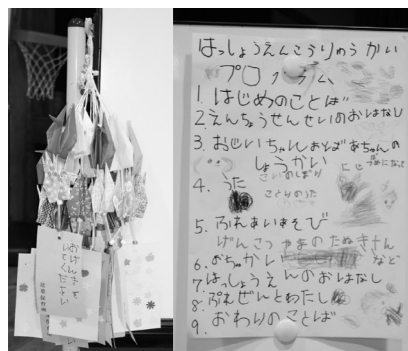 おげんきで
いてください
はっしょうえんこうりゅうかい
プログラム
1. はじめのことば
2. えんちょうせんせいのおはなし
3. おじいちゃんおばあちゃんの
しょうかい
4. うた
こいのぼり
ことりのうた
にじ
5. ふれあいあそび
げんこつやまのたぬきさん
など
6. おちゃかい
7. はっしょうえんのおはなし
8. ぷれぜんとわたし
9. おわりのことば